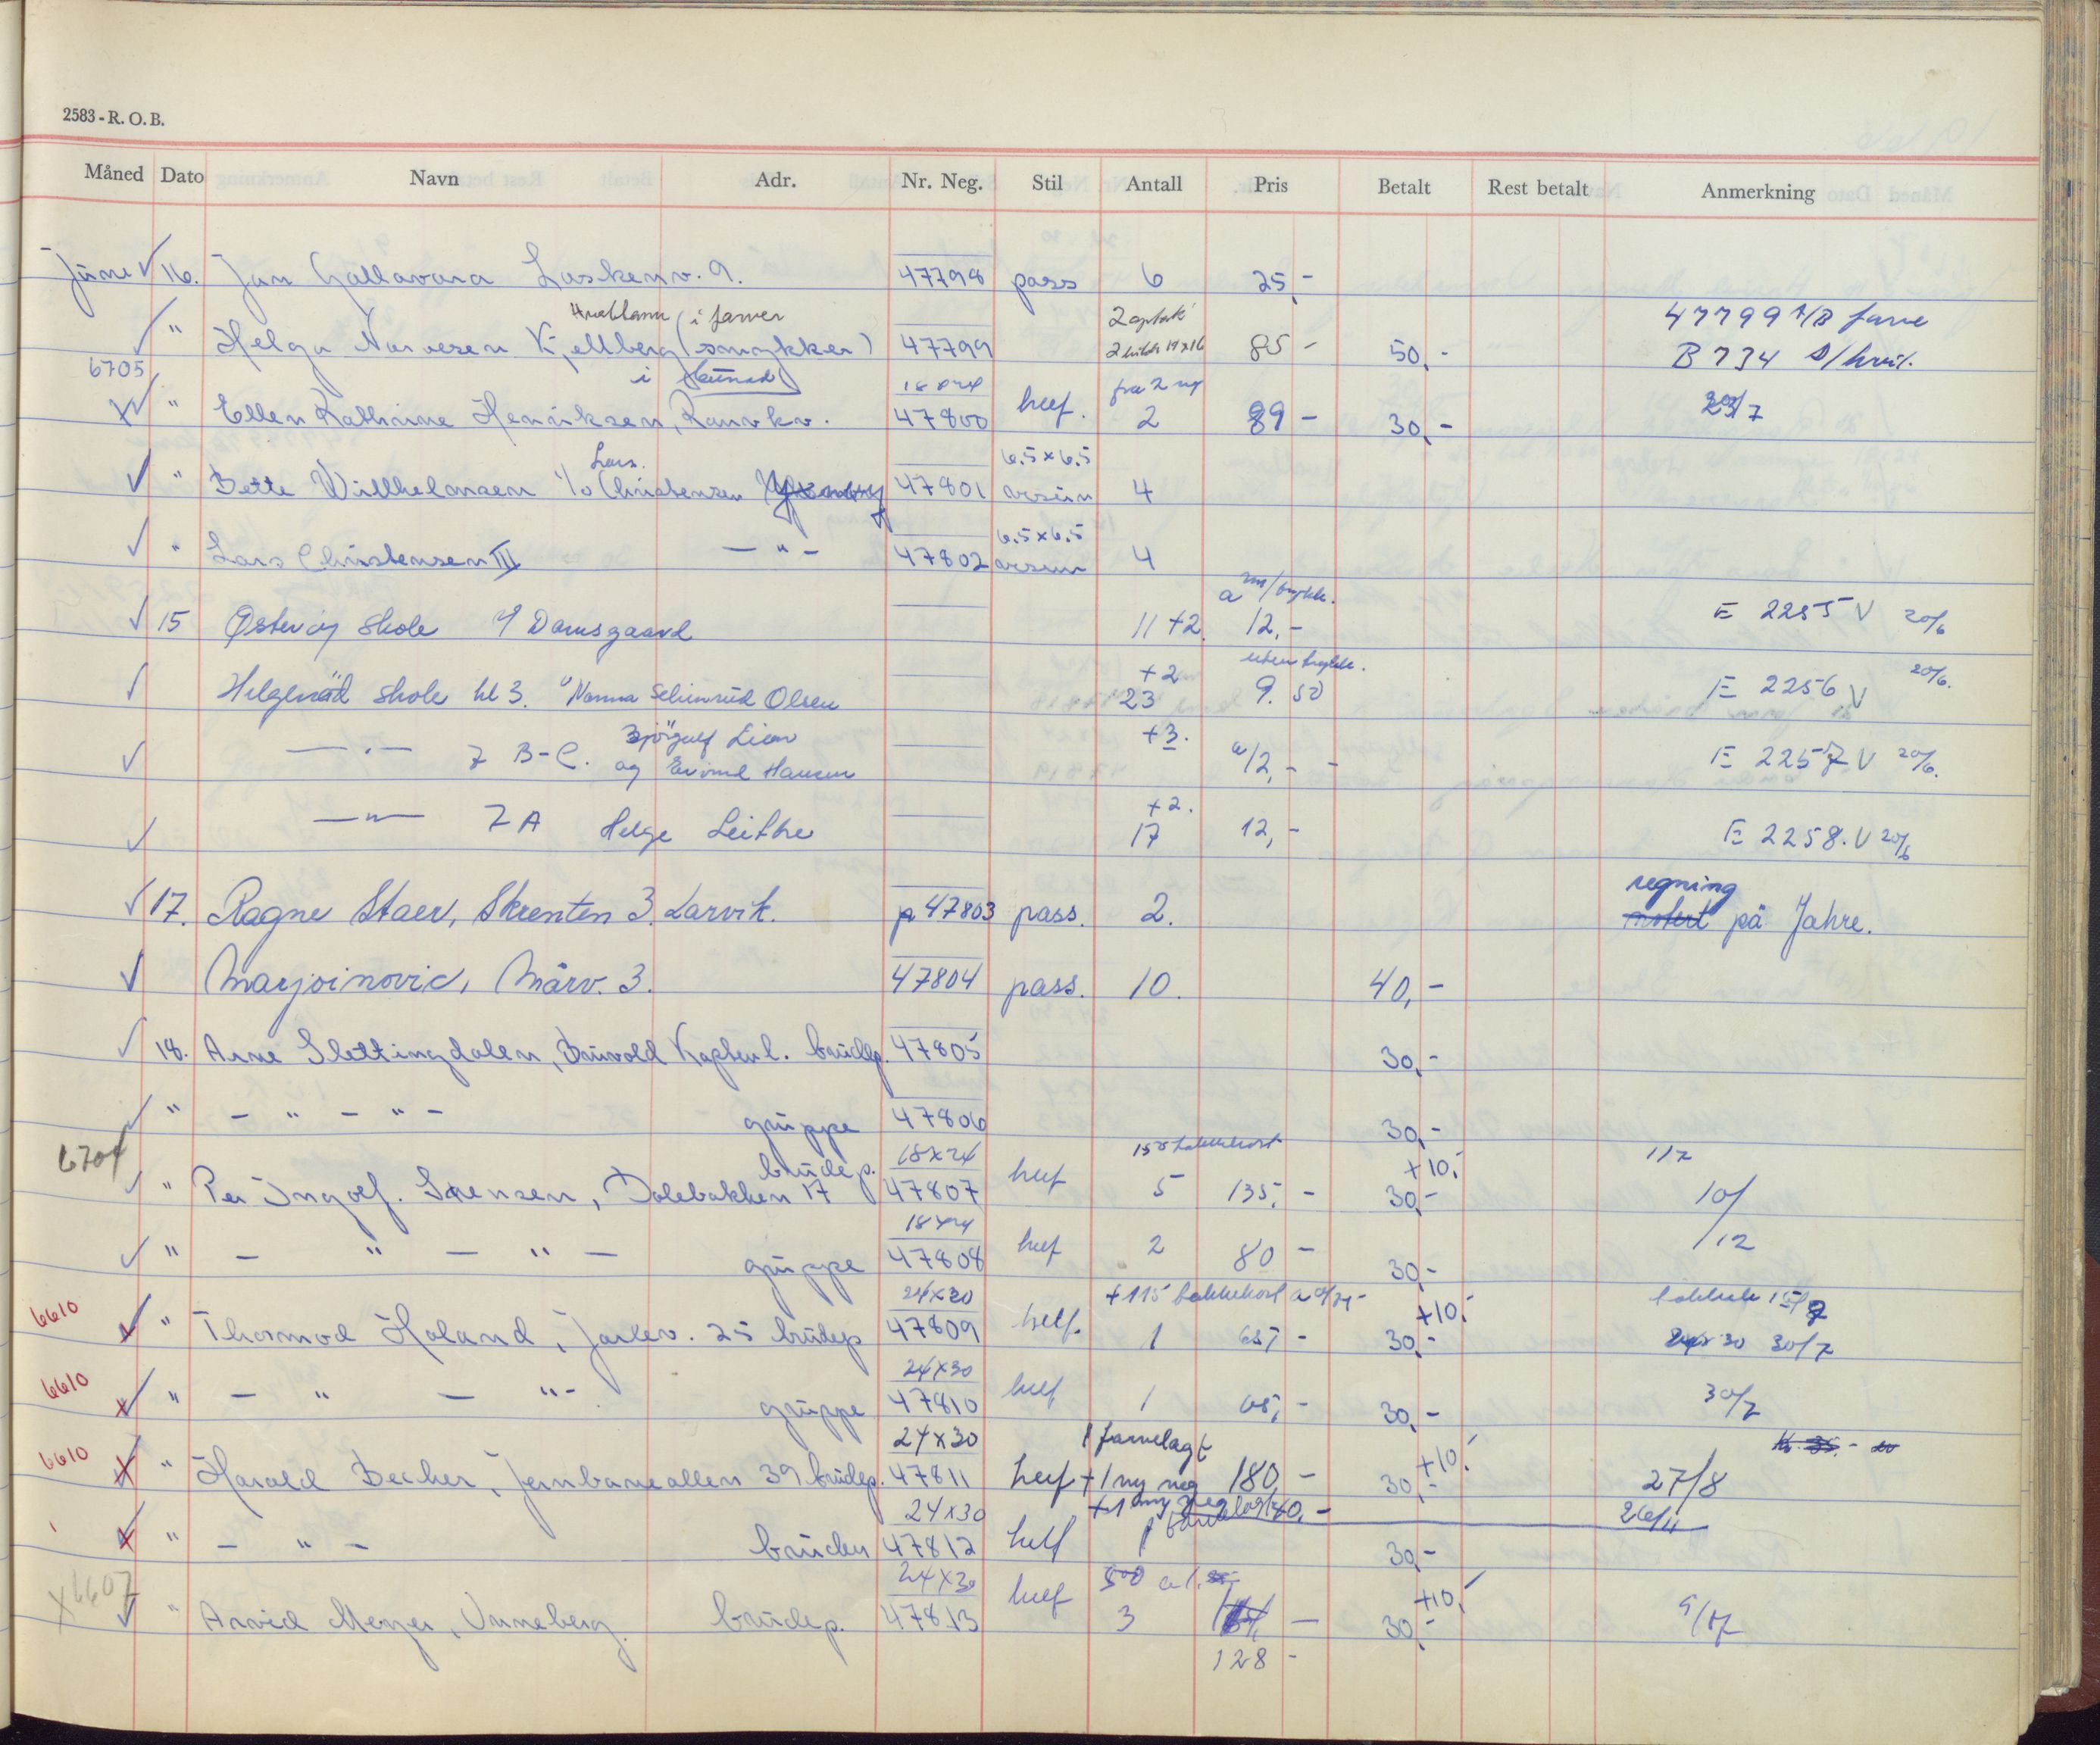 2583-R.O.B.
Måned Dato Navn Adr. Nr. Neg. Stil Antall Pris Betalt Rest betalt Anmerkning
June ✓ 16. Jan Gallavara Laskenv. 9. 47798 pass 6 25,-
i farver 2 optak 47799 A/B farve
✓ " Helga Narvesen Kjellberg (smykker) 47799 2 bilder 14x16 85 - 50,- B 734 S/hvit.
6705 i 18x24 fra 2 ny
x✓ " Ellen Kathrine Henriksen, Ranvkv. 47800 hief. 2 89 - 30,- 7
Lars. 6.5x6.5
✓ " Bette Willhelmsen c/o Christensen 47801 4
6.5x6.5
✓ " Lars Christensen III — " — 47802 4
a m/trykk.
✓ 15 Østerøy skole v/ Damsgaard 11 +2. 12,- E 2255 V 20/6
+2 uten trykk.
✓ Helgerød skole kl 3. Nanna Selimrud Olsen 23 9.50 E 2256 V 20/6.
Bjørgulf Lien +3.
✓ — " — 7 B-C. og Eivind Hansen a/2,- - E 2257 V 20/6.
+2.
✓ — " — 7 A Helge Leithe 17 12,- E 2258. V 20/6
regning
✓ 17. Ragne Staer, Skrenten 3. Larvik. p 47803 pass. 2. notert på Jahre.
✓ Marjoinovic, Mårv. 3. 47804 pass. 10. 40,-
✓ 18. Arne Slettingdalen, Kapherl. brudep. 47805 30,-
✓ " — " — " — gruppe 47806 30,-
6704 brudep. 18x24 150 takkekort +10,- 1/7
✓ " Per Ingolf. Sørensen, Dolebakken 17 47807 hief 5 135,- 30,- 10/12
✓ " — " — " — gruppe 18x24 47808 hief 2 80 - 30,-
6610 24x30 +115 takkekort a +10,- takkek 15/7
✓ " Thormod Holand, Jarlev. 25 brudep 47809 helf. 1 65,- 30,- 24x30 30/7
6610 24x30
x✓ " — " — " - gruppe 47810 hief 1 65,- 30,- 30/7
6610 24x30 1 farvelagt +10,-
x " Harald Becher, Jernbancallen 39 brudep. 47811 hief +1 ny neg 180,- 30,- 27/8
24x30 +1 ny neg 40,- 26/11
x " — " — bruden 47812 helf 1 farvelagt 30,-
x 6607 24x30 500 a +10,-
✓ " Arvid Meyer, Unneberg. brudep. 47813 hief 3 30,- 9/17
128 -